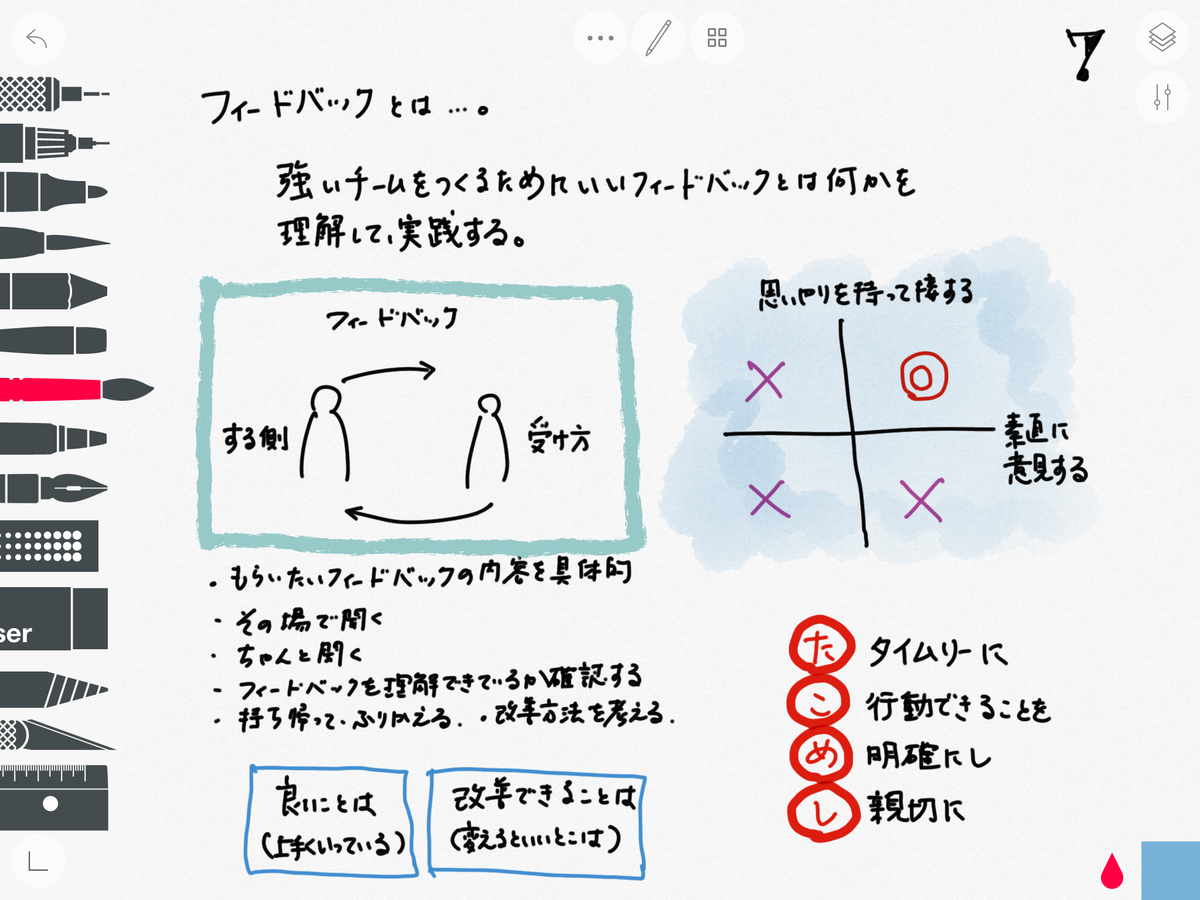 7
フィードバックとは…。
強いチームをつくるためにいいフィードバックとは何かを
理解して、実践する。
フィードバック
する側
受け方
思いやりを持って接する
素直に
意見する
・もらいたいフィードバックの内容を具体的
・その場で聞く
・ちゃんと聞く
・フィードバックを理解できているか確認する
・持ち帰って、ふりかえる.・改善方法を考える.
良いことは
(上手くいっている)
改善できることは
(変えるといいとこは)
た タイムリーに
こ 行動できることを
め 明確にし
し 親切に
ser